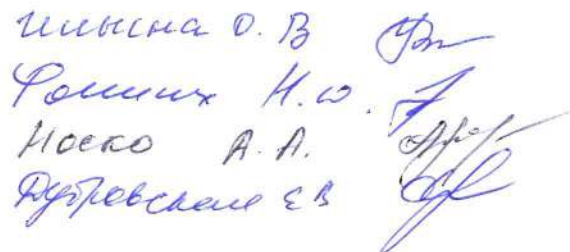 Ильина О. В
Фоминых Н. Ю.
Носко А. А.
Дубровская Е В